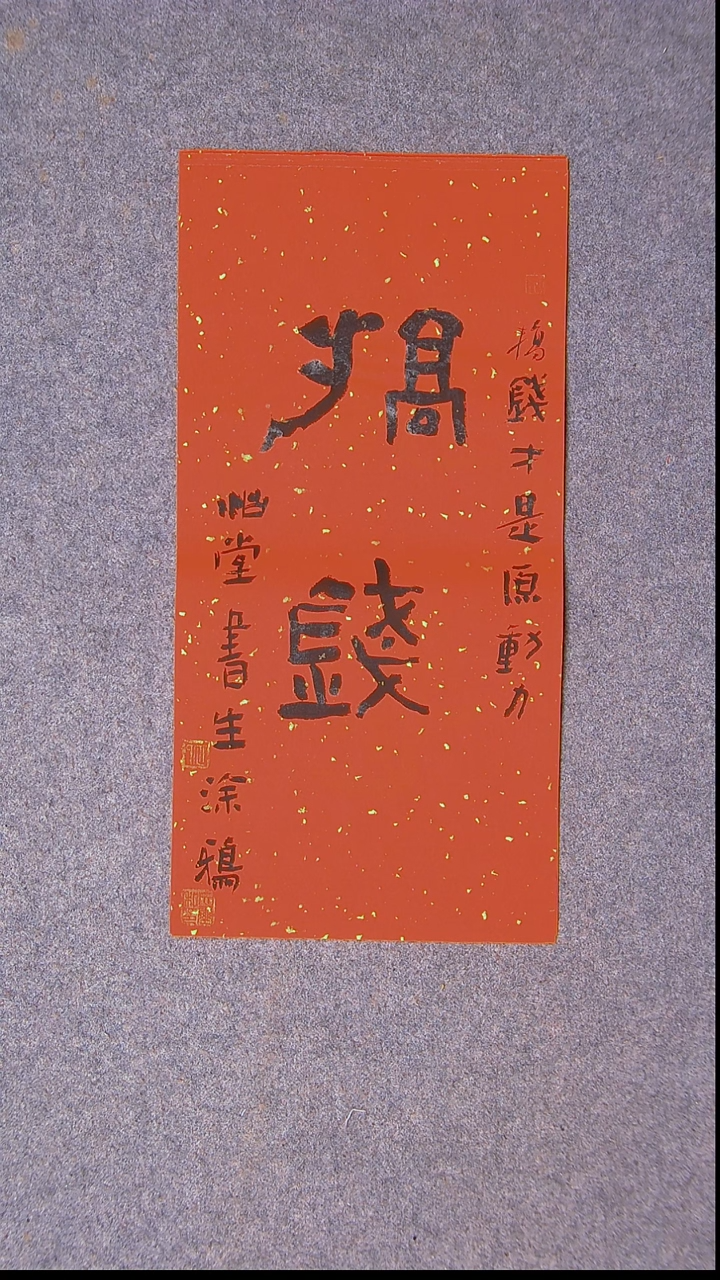 搞錢
搞錢才是原動力
堂書生涂鴉